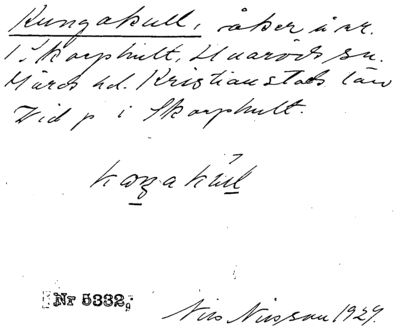 Kungakull, åker å nr.
1 Skarphult, Huaröds sn.
Gärds hd. Kristianstads län
Vid p i Skarphult.
Nr 5332,
Nils Nilsson 1929.